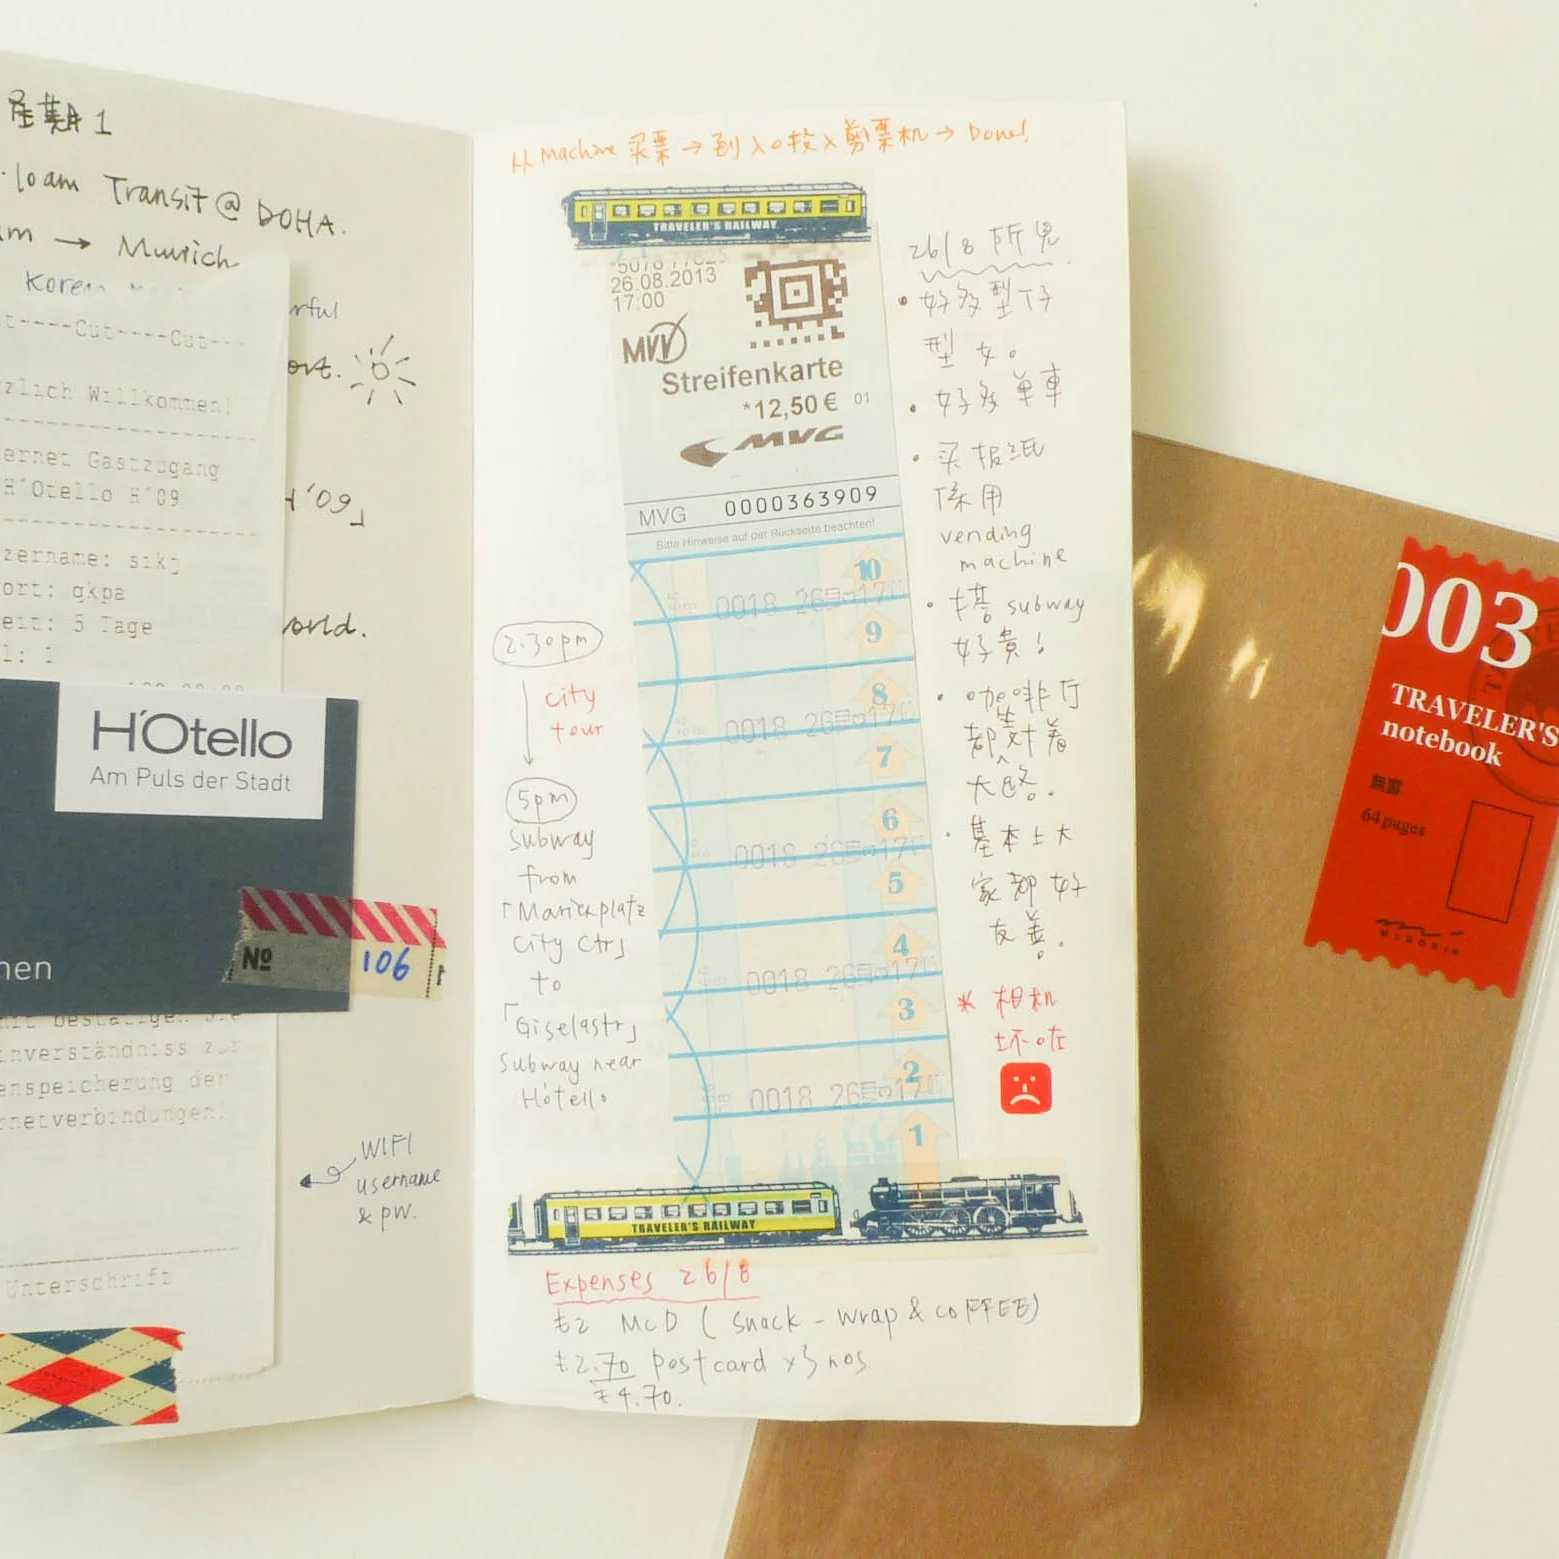 星期1
10am Transit @ DOHA.
am → Munich
Korean
rful
ort.
H'09」
world.
----Cut----Cut---
zlich Willkommen!
ernet Gastzugang
H'Otello H'09
zername: sikj
ort: qkpa
eit: 5 Tage
l: 1
H'Otello
Am Puls der Stadt
nen
Nº 106
mit bestätigen Sie
inverständnis zur
enspeicherung der
rnetverbindungen!
Unterschrift
WIFI
username
& pw.
从 Machine 买票 → 到入口投入剪票机 → Done!
TRAVELER'S RAILWAY
26.08.2013
17:00
MVV
Streifenkarte
*12,50 € 01
MVG
MVG 0000363909
Bitte Hinweise auf der Rückseite beachten!
10
0018 26 17
9
8
0018 26 17
7
6
0018 26 17
5
4
0018 26 17
3
2
0018 26 17
1
2.30pm
city
tour
5pm
Subway
from
「Marienplatz
City Ctr」
to
「Giselastr」
Subway near
Hótello
26/8 所見
• 好多型仔
型女。
• 好多單車
• 买报纸
係用
vending
machine
• 搭 subway
好貴！
• 咖啡厅
都對着
大路。
• 基本上大
家都好
友善。
* 相机
坏咗
TRAVELER'S RAILWAY
Expenses 26/8
€2 McD (snack-wrap & COFFEE)
€2.70 postcard x 3 nos.
€4.70.
003
TRAVELER'S
notebook
無罫
64 pages
MIDORI